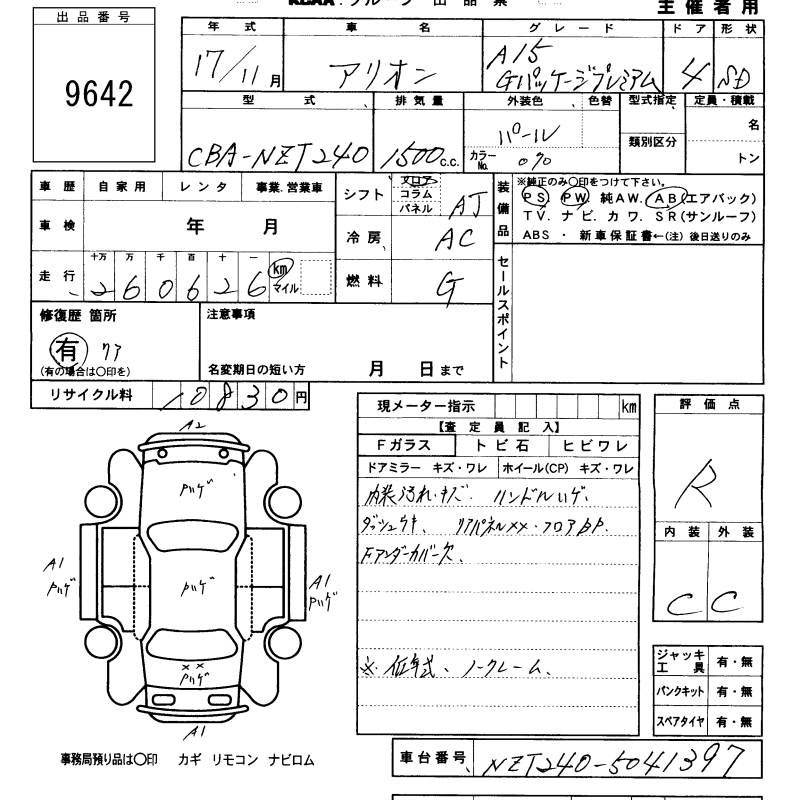 出品番号
9642
主催者用
年式 車名 グレード ドア 形状
17/11月 アリオン A15 Gパッケージプレミアム 4 SD
型式 排気量 外装色 色替 型式指定 定員・積載
CBA-NZT240 1500c.c. パール 類別区分 名
カラーNo. 070 トン
車歴 自家用 レンタ 事業.営業車
車検 年 月
走行 十万 万 千 百 十 一 km マイル
260626
シフト フロア コラム パネル AT
冷房 AC
燃料 G
装備品
※純正のみ〇印をつけて下さい。
PS PW 純AW. AB(エアバック)
TV. ナビ. カワ. SR(サンルーフ)
ABS ・ 新車保証書←(注) 後日送りのみ
セールスポイント
修復歴 箇所
有 リア
(有の場合は〇印を)
注意事項
名変期日の短い方 月 日まで
リサイクル料 10830円
現メーター指示 km
【査定員記入】
Fガラス トビ石 ヒビワレ
ドアミラー キズ・ワレ ホイール(CP) キズ・ワレ
内装汚れ・キズ. ハンドルハゲ.
ダッシュウキ、 リアパネルXX・フロアBP.
Fアンダーカバー欠.
※ 低年式、ノークレーム、
評価点
R
内装 外装
C C
ジャッキ工具 有・無
パンクキット 有・無
スペアタイヤ 有・無
A2
Pハゲ
A1
Pハゲ
Pハゲ
A1
Pハゲ
××
Pハゲ
A1
事務局預り品は〇印 カギ リモコン ナビロム
車台番号 NZT240-5041397